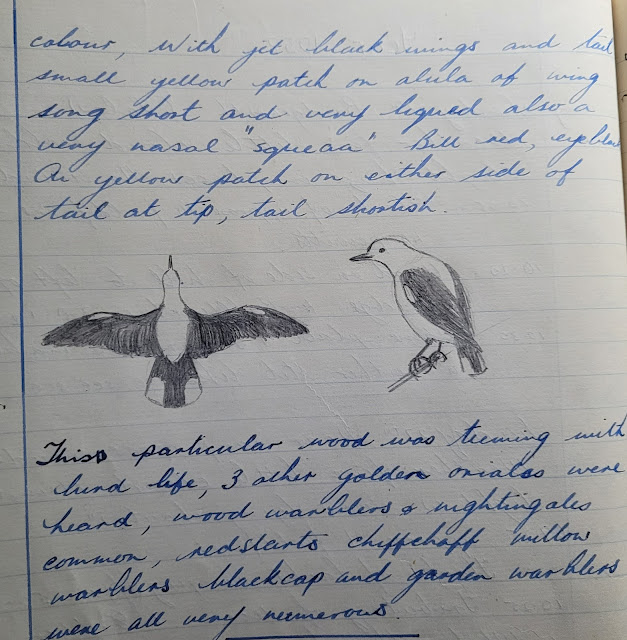 colour, with jet black wings and tail
small yellow patch on alula of wing
song short and very liqued also a
very nasal "squeaa" Bill red, eye black
An yellow patch on either side of
tail at tip, tail shortish.
This particular wood was teeming with
bird life, 3 other golden orioles were
heard, wood warblers & nightingales
common, redstarts chiffchaff willow
warblers blackcap and garden warblers
were all very numerous.